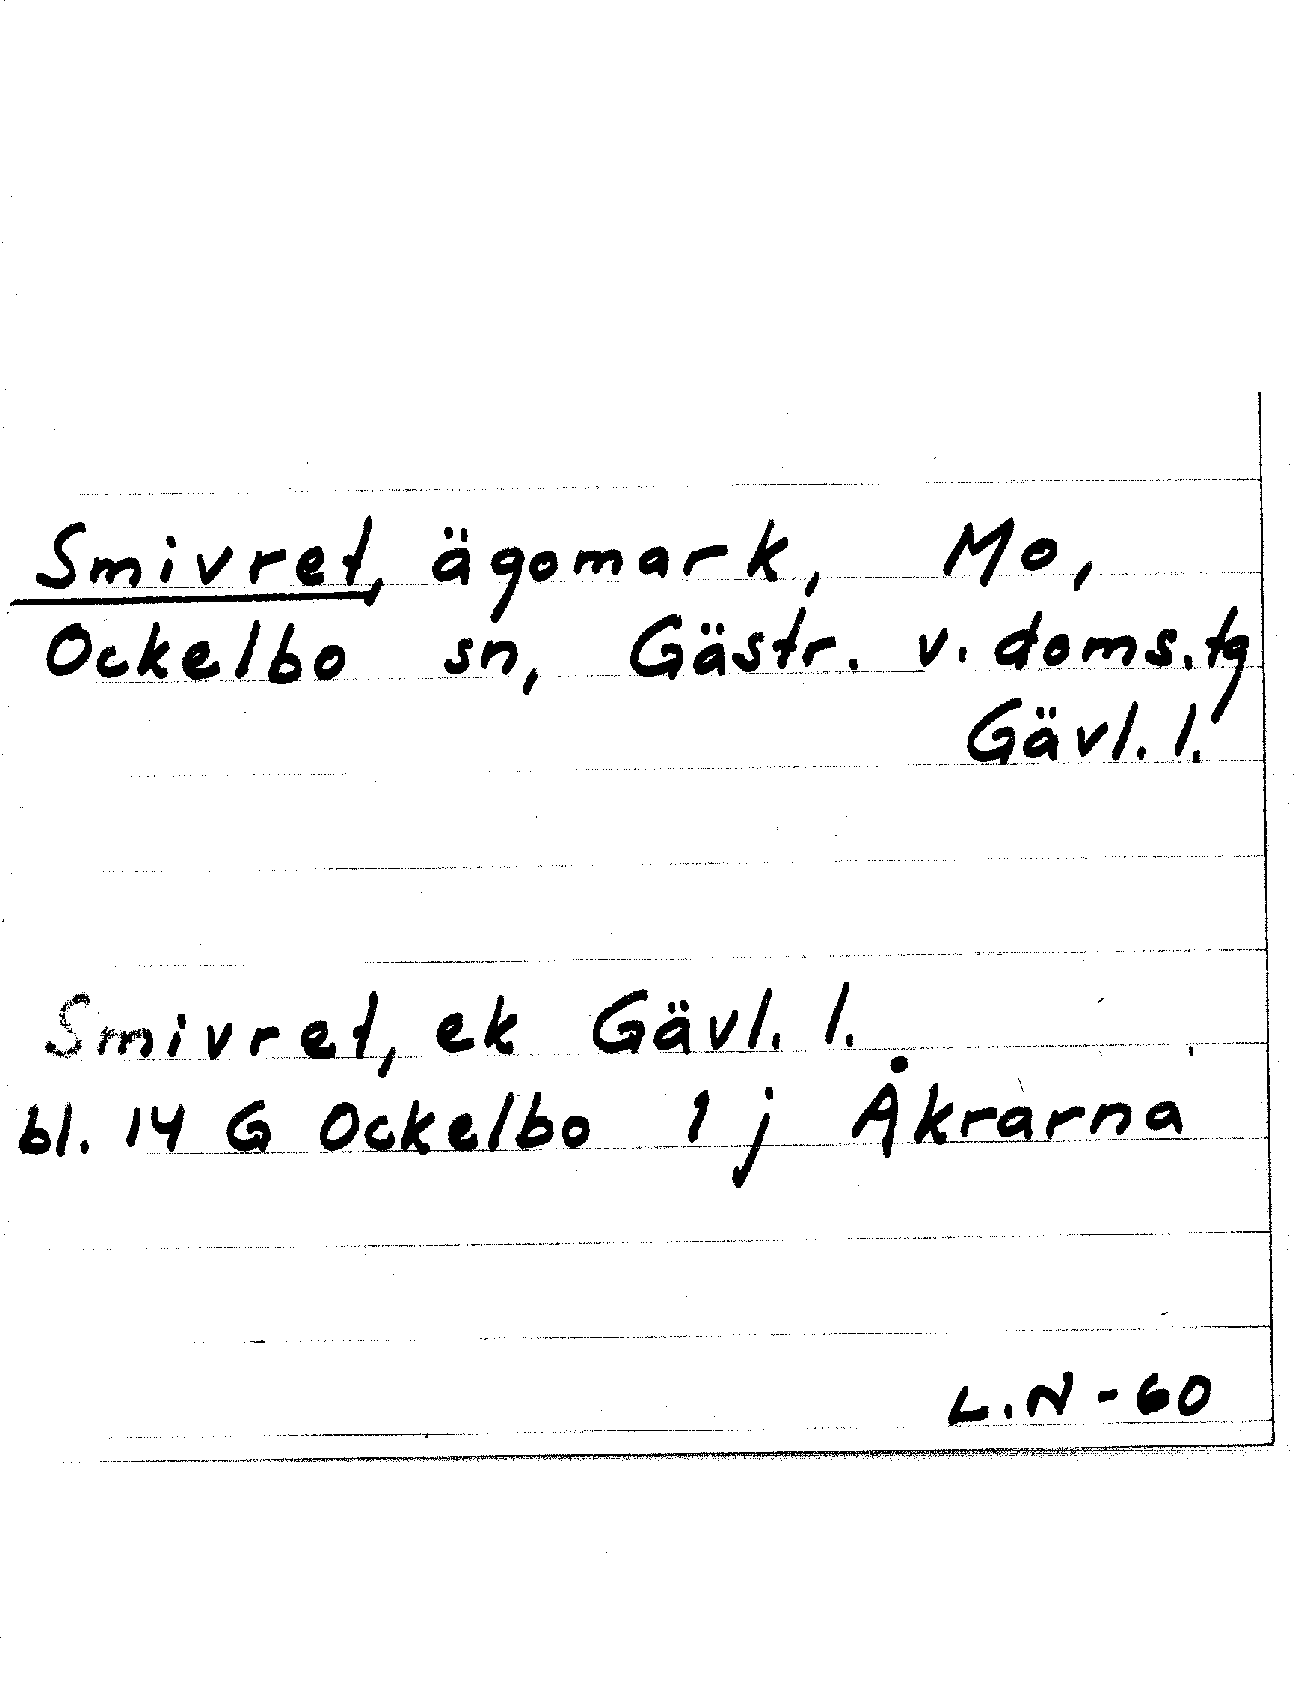 Smivret, ägomark, Mo,
Ockelbo sn, Gästr. v. doms.tg
Gävl. l.
Smivret, ek Gävl. l.
bl. 14 G Ockelbo 1 j Åkrarna
L.N - 60